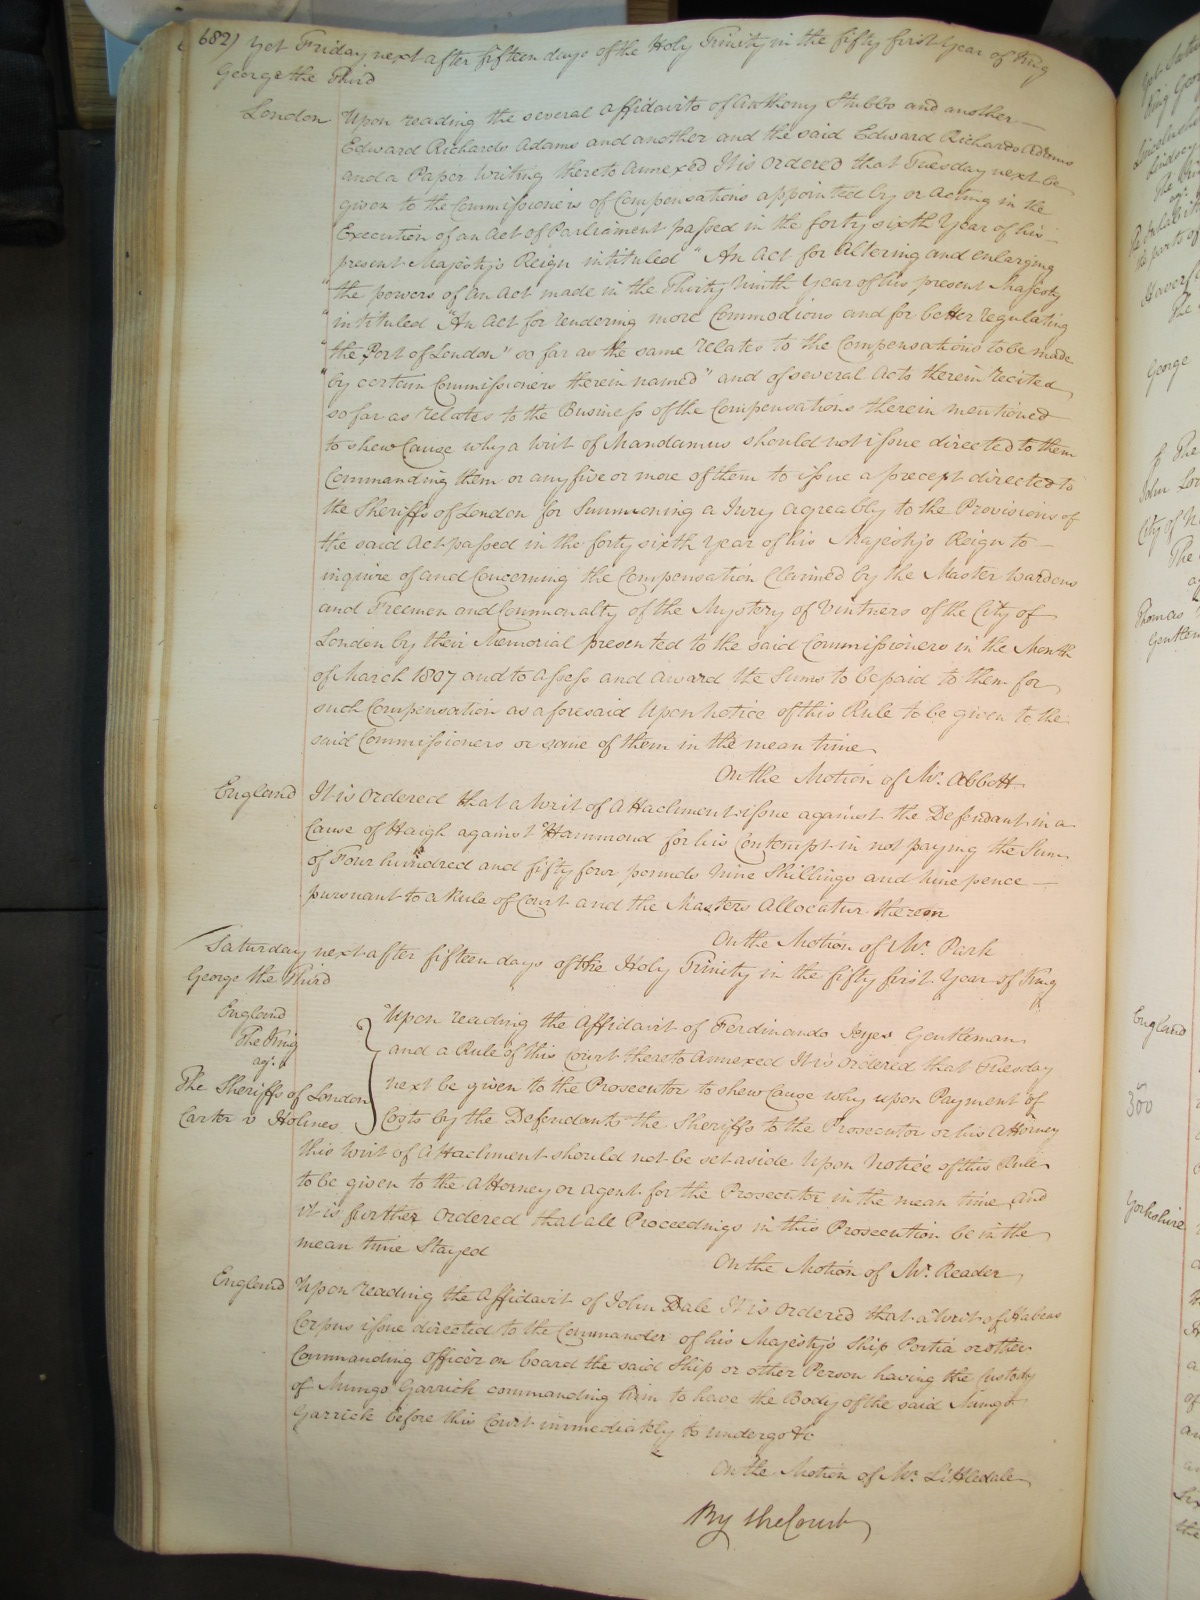 682) Yet Friday next after fifteen days of the Holy Trinity in the fifty first Year of King
George the Third
London Upon reading the several affidavits of Anthony Stubbs and another
Edward Richards Adams and another and the said Edward Richards Adams
and a Paper Writing thereto Annexed It is Ordered that Tuesday next be
given to the Commissioners of Compensations appointed by or Acting in the
Execution of an Act of Parliament passed in the forty sixth Year of his
present Majesty's Reign intituled "An Act for Altering and enlarging
"the powers of an Act made in the Thirty Ninth Year of his present Majesty
"intituled "An Act for rendering more Commodious and for better regulating
"the Port of London" so far as the same relates to the Compensations to be made
"by certain Commissioners therein named" and of several Acts therein recited
so far as relates to the Business of the Compensations therein mentioned
to shew Cause why a Writ of Mandamus should not issue directed to them
Commanding them or any five or more of them to issue a precept directed to
the Sheriffs of London for Summoning a Jury agreably to the Provisions of
the said Act passed in the forty sixth Year of his Majesty's Reign to
inquire of and Concerning the Compensation Claimed by the Master Wardens
and Freemen and Commonalty of the Mystery of Vintners of the City of
London by their Memorial presented to the said Commissioners in the Month
of March 1807 and to Assess and award the Sums to be paid to them for
such Compensation as aforesaid Upon Notice of this Rule to be given to the
said Commissioners or some of them in the mean time
On the Motion of Mr. Abbott
England It is Ordered that a Writ of Attachment issue against the Defendant in a
Cause of Haigh against Hammond for his Contempt in not paying the Sum
of Four hundred and fifty four pounds Nine Shillings and Nine pence
pursuant to a Rule of Court and the Masters Allocatur thereon
On the Motion of Mr. Park
Saturday next after fifteen days of the Holy Trinity in the fifty first Year of King
George the Third
England
The King
agt.
The Sheriffs of London
Carter v Holmes
Upon reading the Affidavit of Ferdinando Jeyes Gentleman
and a Rule of this Court thereto Annexed It is Ordered that Tuesday
next be given to the Prosecutor to shew Cause why upon Payment of
Costs by the Defendants the Sheriffs to the Prosecutor or his Attorney
this Writ of Attachment should not be set aside Upon Notice of this Rule
to be given to the Attorney or Agent for the Prosecutor in the mean time and
it is further Ordered that all Proceedings in this Prosecution be in the
mean time Stayed
On the Motion of Mr. Reader
England Upon reading the Affidavit of John Dale It is Ordered that a Writ of Habeas
Corpus issue directed to the Commander of his Majesty's Ship Portia or other
Commanding Officer on board the said Ship or other Person having the Custody
of Mungo Garrick commanding him to have the Body of the said Mungo
Garrick before this Court immediately to undergo &c
On the Motion of Mr. Littledale
By the Court
George
The
John
City of
The
Thomas
England
300
Yorkshire